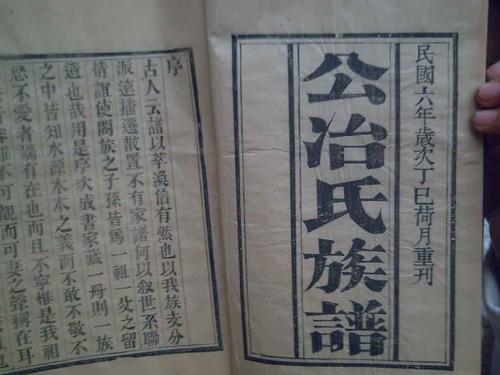 民國六年歲次丁巳荷月重刊
公冶氏族譜
序
古人云譜以萃渙信有然也以我族支分
派遠播遷散置不有家譜何以敘世系聯
情誼使闔族之子孫皆爲一祖一父之留
遺也哉用是序次成書家藏一冊則一族
之中皆知水源木本之義而不敢不敬不
恐不愛者端有在也而且不寧惟是我祖
不可觀而可妻之聲稱在耳